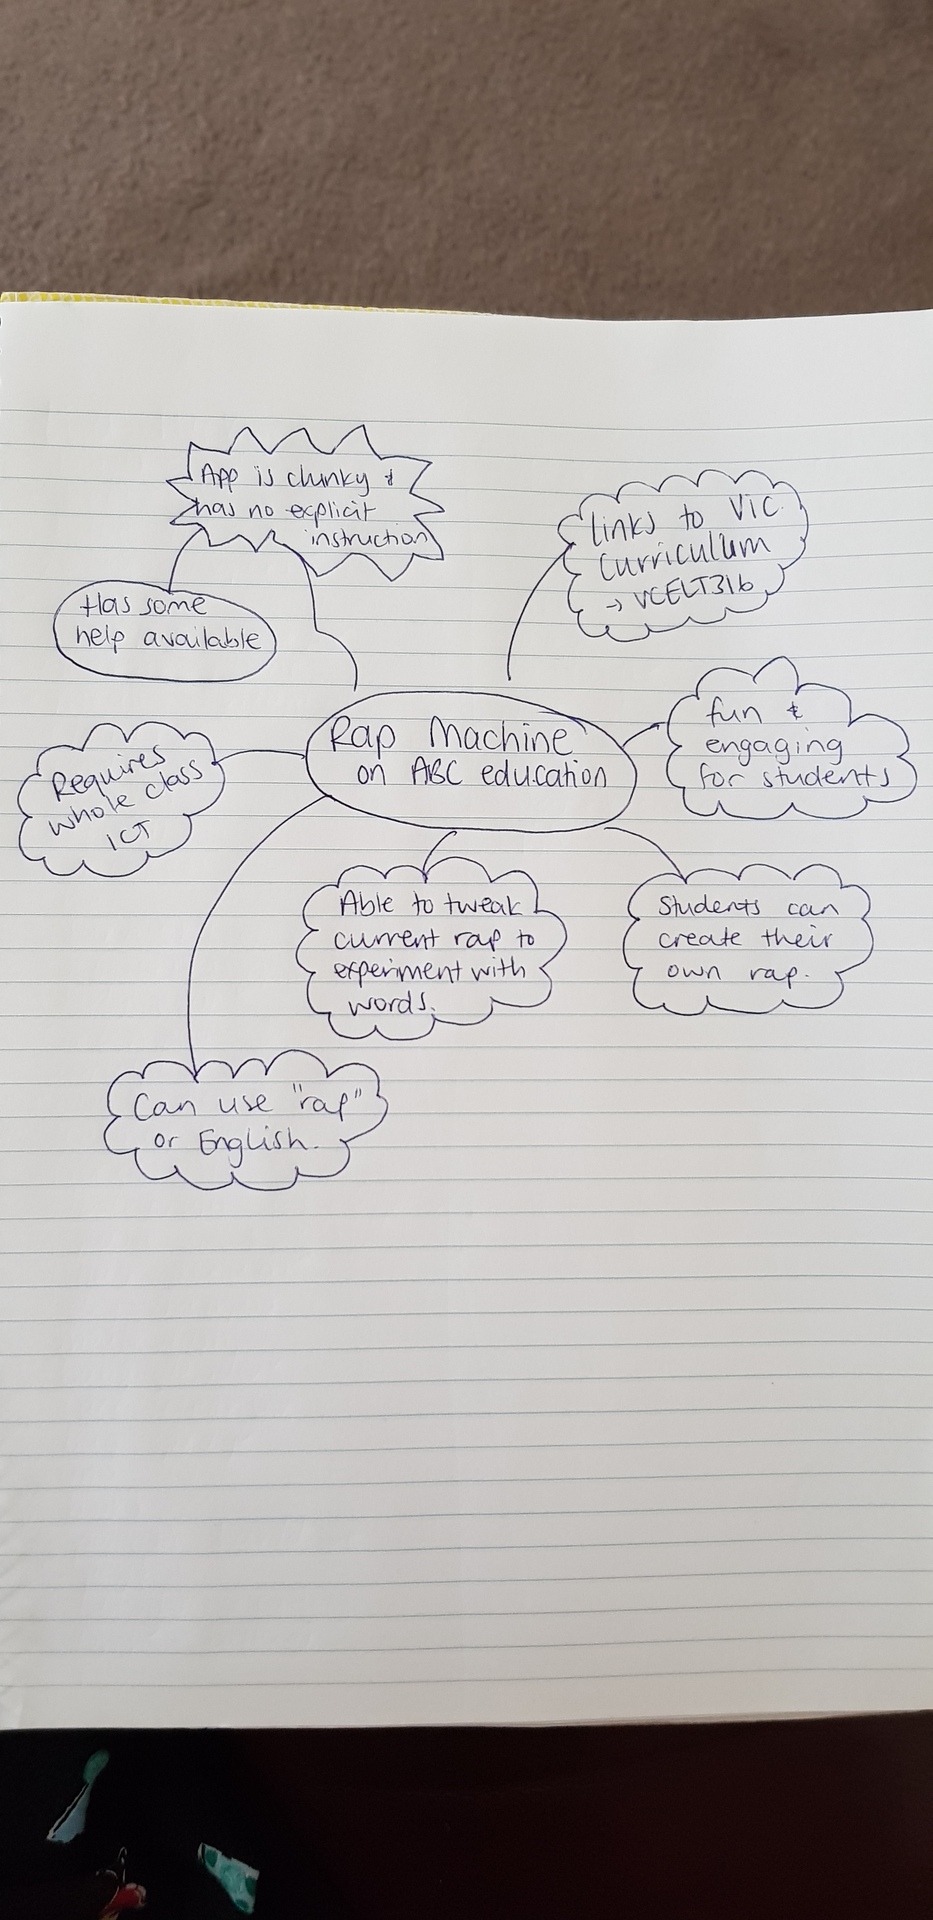 App is clunky &
has no explicit
instruction
Links to Vic.
Curriculum
→ VCELT316
Has some
help available
Rap Machine
on ABC education
fun &
engaging
for students
Requires
whole class
ICT
Able to tweak
current rap to
experiment with
words.
Students can
create their
own rap.
Can use "rap"
or English.